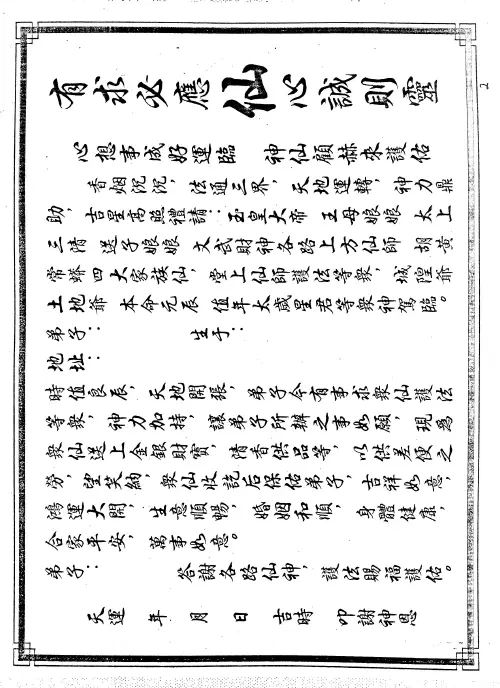 有求必應 仙 心誠則靈
心想事成好運臨 神仙顧赫來護佑
香烟沉沉，法通三界，天地運轉，神力鼎
助，吉星高照禮請：玉皇大帝 王母娘娘 太上
三清 送子娘娘 文武財神各路上方仙師 胡黃
常蟒四大家族仙，堂上仙師護法等衆，城隍爺
土地爺 本命元辰 值年太歲星君等衆神駕臨。
弟子： 生于：
地址：
時值良辰，天地開張，弟子今有事求衆仙護法
等衆，神力加持，讓弟子所辦之事如願，現爲
衆仙送上金銀財寶，清香供品等，以供差使之
勞，望笑納，衆仙收訖后保佑弟子，吉祥如意，
鴻運大開，生意順暢，婚姻和順，身體健康，
合家平安，萬事如意。
弟子： 答謝各路仙神，護法賜福護佑。
天運 年 月 日 吉時 叩謝神恩
2